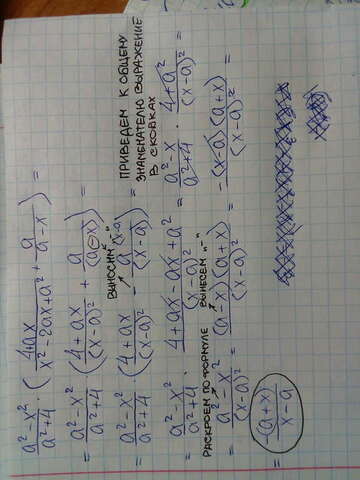 (a²-x²)/(a²+4) · ( (4+ax)/(x²-2ax+a²) + a/(a-x) ) =
= (a²-x²)/(a²+4) · ( (4+ax)/(x-a)² + a/(a-x) ) =
ВЫНОСИМ "-"
= (a²-x²)/(a²+4) · ( (4+ax)/(x-a)² - a(x-a)/(x-a) ) =
ПРИВЕДЕМ К ОБЩЕМУ
ЗНАМЕНАТЕЛЮ ВЫРАЖЕНИЕ
В СКОБКАХ
= (a²-x²)/(a²+4) · (4+ax-ax+a²)/(x-a)² = (a²-x²)/(a²+4) · (4+a²)/(x-a)² =
РАСКРОЕМ ПО ФОРМУЛЕ ВЫНЕСЕМ "-"
= (a²-x²)/(x-a)² = (a-x)(a+x)/(x-a)² = -(x-a)(a+x)/(x-a)² =
= -(a+x)/(x-a)